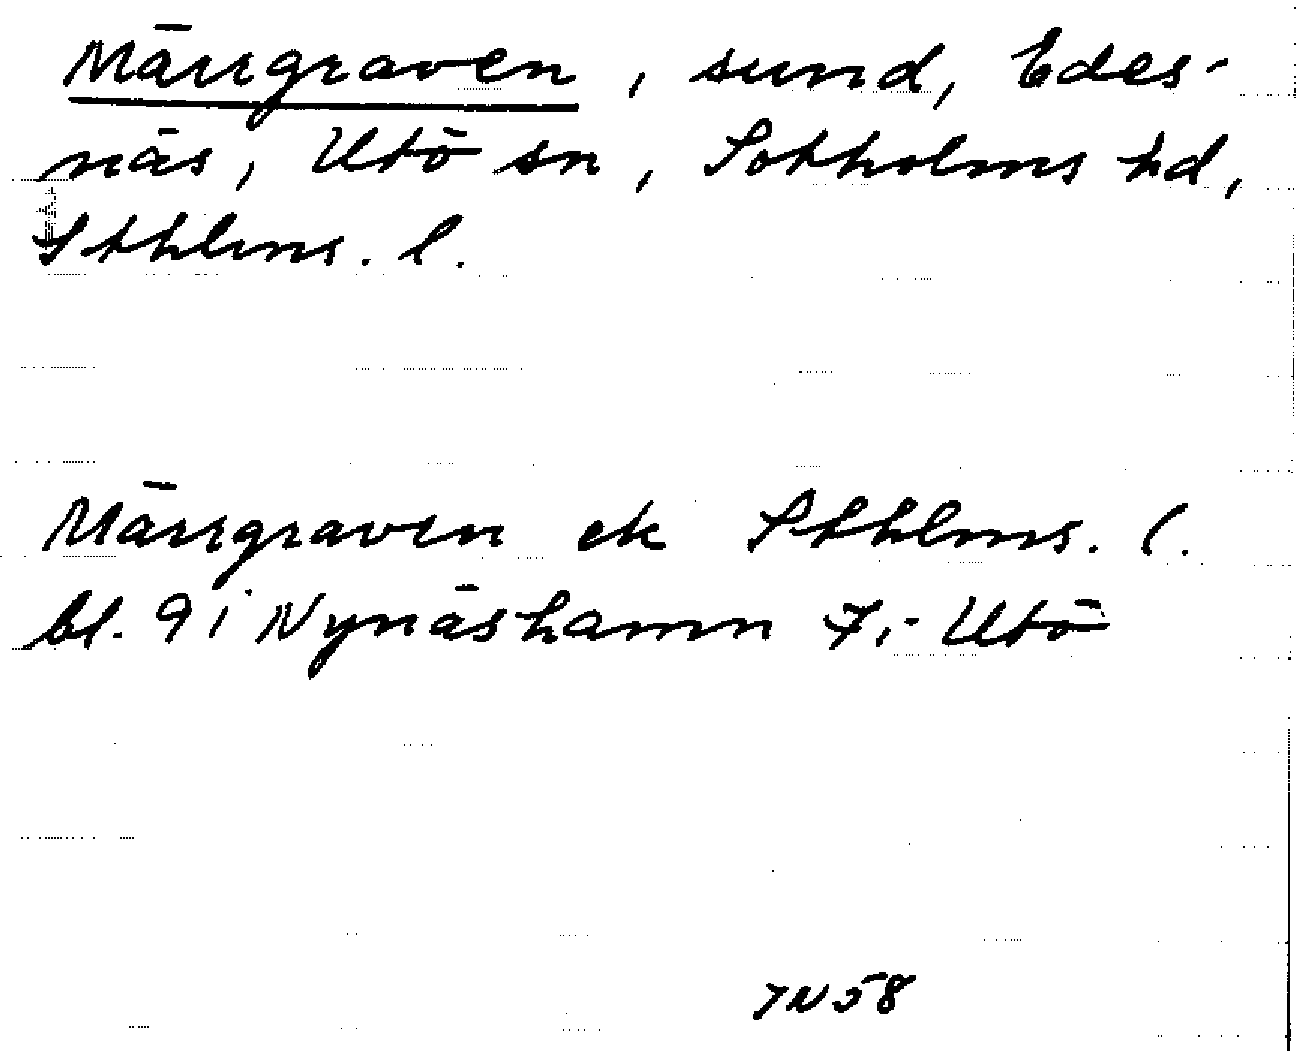 Märrgraven, sund, Edes-
näs, Utö sn, Sotholms hd,
Sthlms. l.
Märrgraven ek Sthlms. l.
bl. 9 i Nynäshamn 7,- Utö
7N58